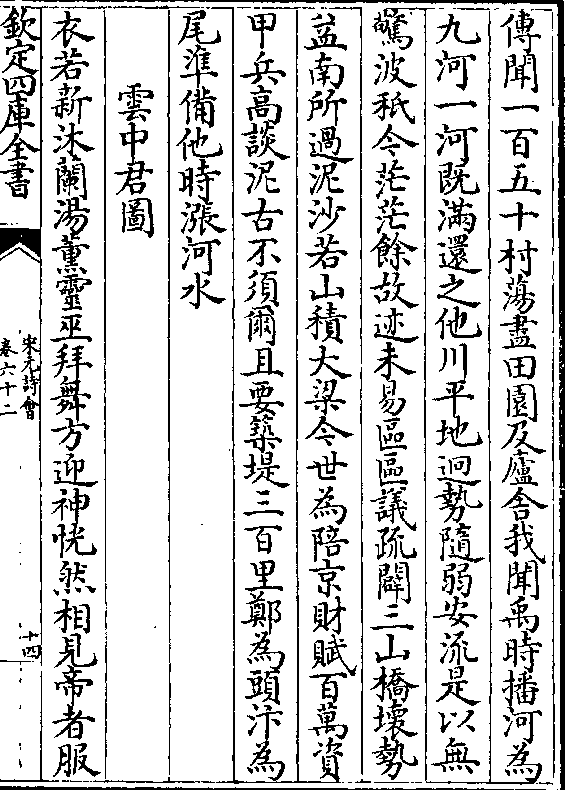 傳聞一百五十村蕩盡田園及廬舍我聞禹時播河為
九河一河既滿還之他川平地迥勢隨弱安流是以無
驚波秪今茫茫餘故迹未易區區議疏闢三山橋壞勢
益南所過泥沙若山積大梁今世為陪京財賦百萬資
甲兵高談泥古不須爾且要築堤三百里鄭為頭汴為
尾準備他時漲河水
雲中君圖
衣若新沐蘭湯薰靈巫拜舞方迎神恍然相見帝者服
欽定四庫全書
宋元詩會
卷六十二
十四